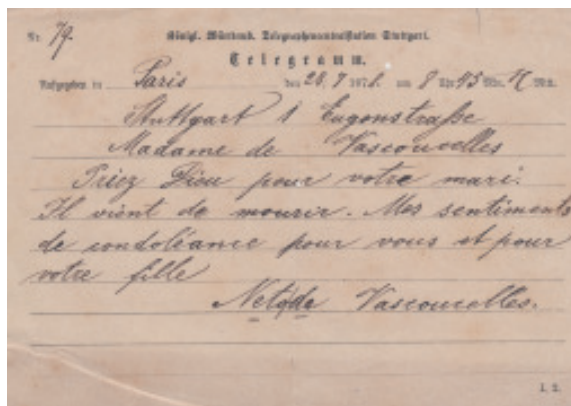 Nr. 79.
Königl. Württemb. Telegraphencentralstation Stuttgart.
Telegramm.
Aufgegeben in Paris den 28. 7 187 um 8 Uhr 45 Min.
Stuttgart 1 Eugenstraße
Madame de Vasconcelles
Priez Dieu pour votre mari.
Il vient de mourir. Mes sentiments
de condoléance pour vous et pour
votre fille
de Vasconcelles.
I. 2.